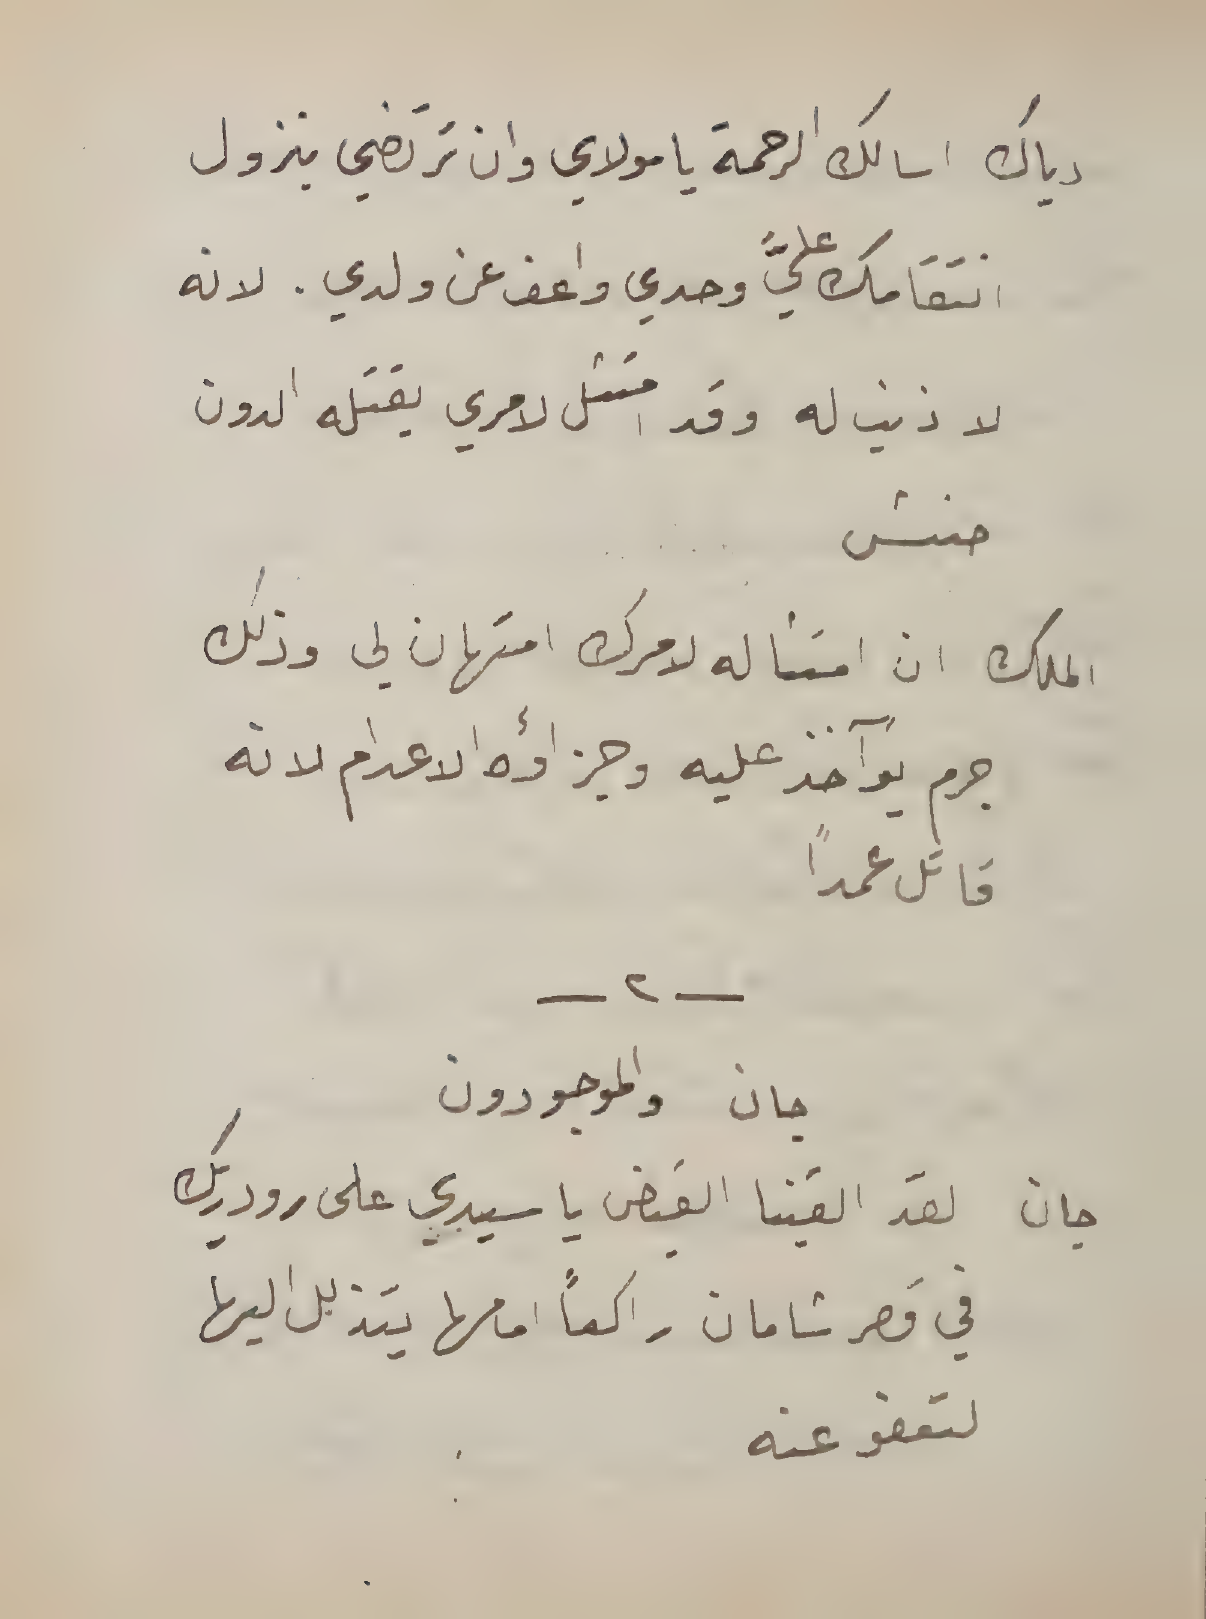 دياك اسالك الرحمة يا مولاي وان ترتضي بنزول
انتقامك عليَّ وحدي واعف عن ولدي . لانه
لا ذنب له وقد امتثل لامري بقتله الدون
حنش
الملك ان امتثاله لامرك امتهان لي وذلك
جرم يؤآخذ عليه وجزاؤه الاعدام لانه
قاتل عمداً
— ٢ —
جان والموجودون
جان لقد القينا القبض يا سيدي على رودريك
في قصر شامان راكعاً امامها يتذلل اليها
لتعفو عنه